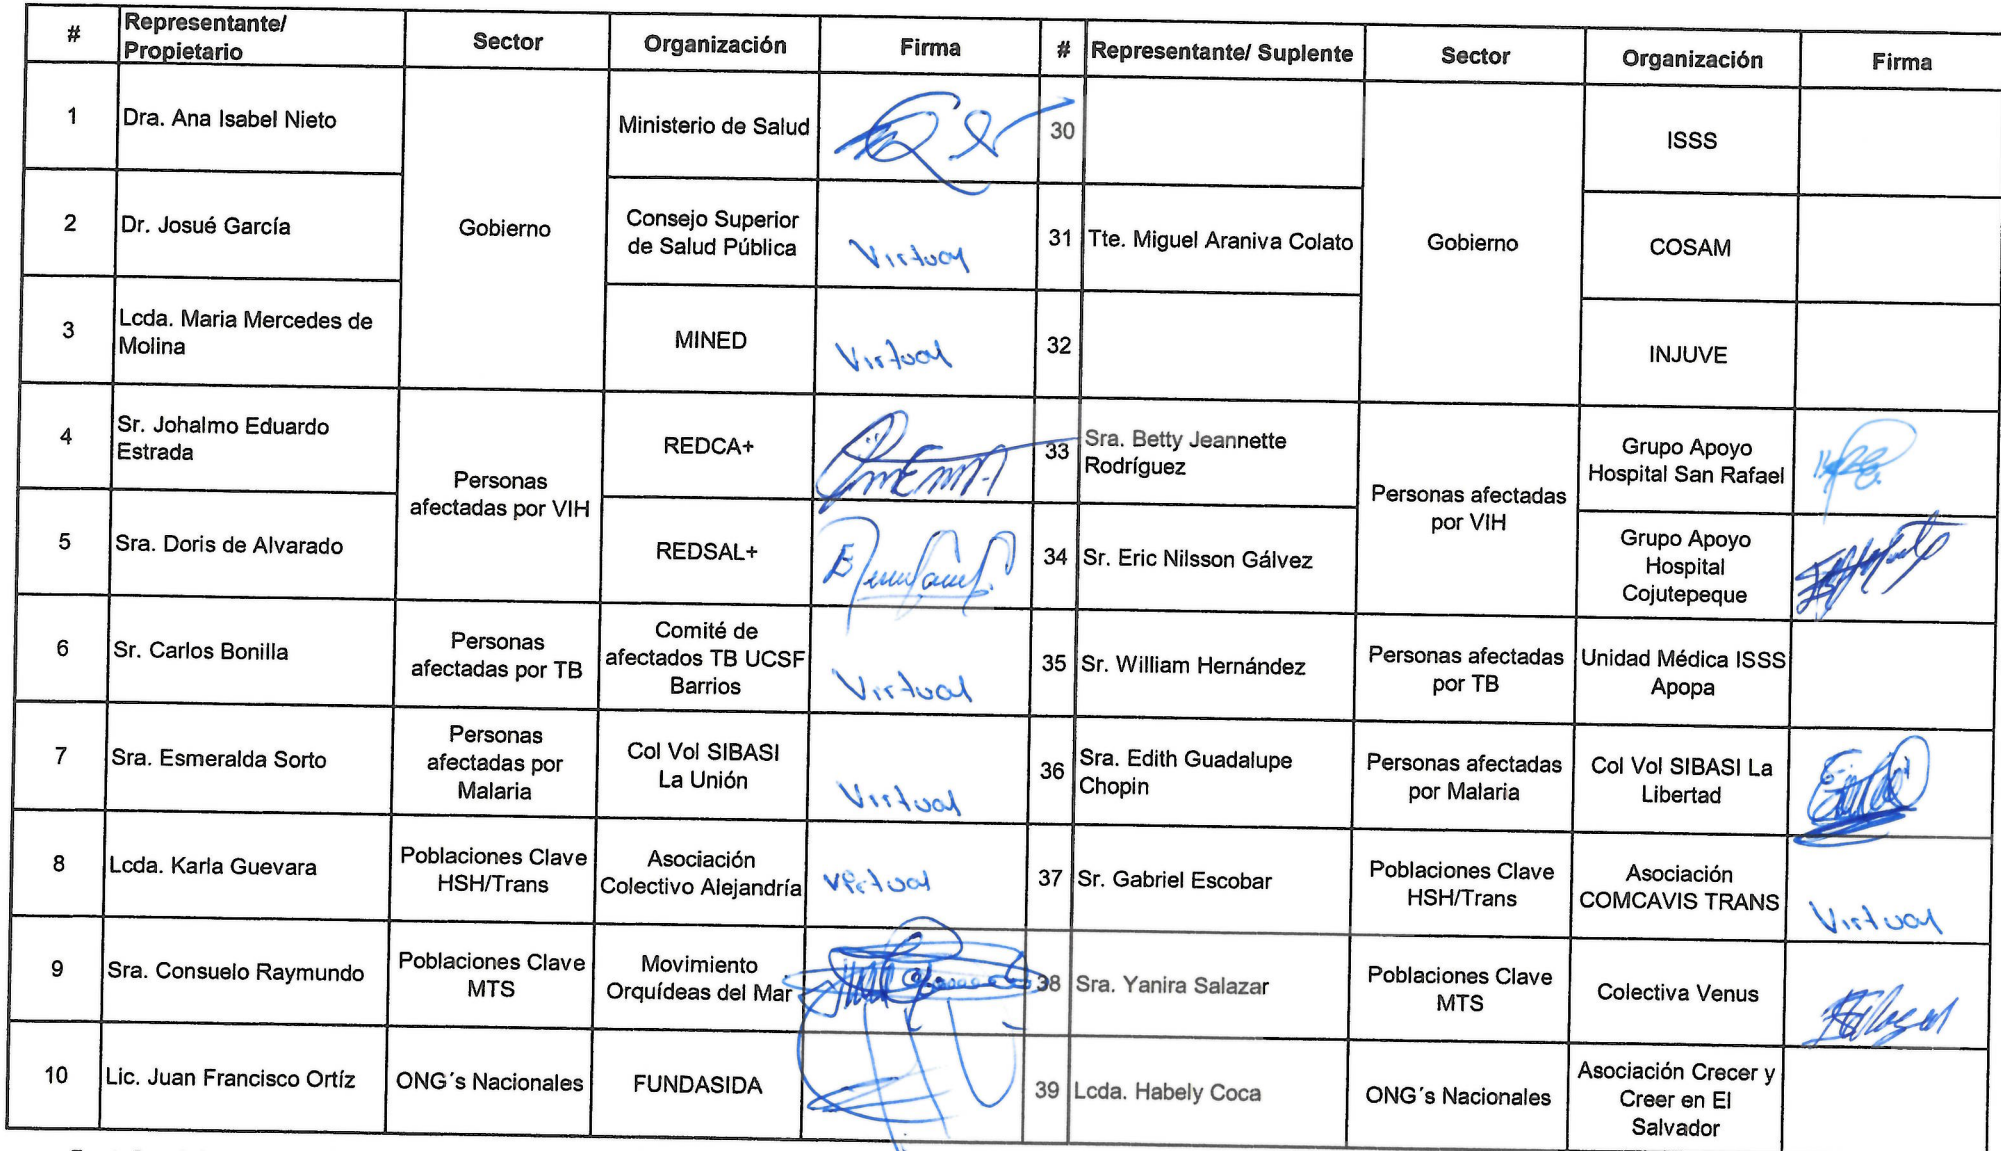 # Representante/ Propietario Sector Organización Firma # Representante/ Suplente Sector Organización Firma
1 Dra. Ana Isabel Nieto Gobierno Ministerio de Salud 30 Gobierno ISSS
2 Dr. Josué García Consejo Superior de Salud Pública Virtual 31 Tte. Miguel Araniva Colato COSAM
3 Lcda. Maria Mercedes de Molina MINED Virtual 32 INJUVE
4 Sr. Johalmo Eduardo Estrada Personas afectadas por VIH REDCA+ 33 Sra. Betty Jeannette Rodríguez Personas afectadas por VIH Grupo Apoyo Hospital San Rafael
5 Sra. Doris de Alvarado REDSAL+ 34 Sr. Eric Nilsson Gálvez Grupo Apoyo Hospital Cojutepeque
6 Sr. Carlos Bonilla Personas afectadas por TB Comité de afectados TB UCSF Barrios Virtual 35 Sr. William Hernández Personas afectadas por TB Unidad Médica ISSS Apopa
7 Sra. Esmeralda Sorto Personas afectadas por Malaria Col Vol SIBASI La Unión Virtual 36 Sra. Edith Guadalupe Chopin Personas afectadas por Malaria Col Vol SIBASI La Libertad
8 Lcda. Karla Guevara Poblaciones Clave HSH/Trans Asociación Colectivo Alejandría Virtual 37 Sr. Gabriel Escobar Poblaciones Clave HSH/Trans Asociación COMCAVIS TRANS Virtual
9 Sra. Consuelo Raymundo Poblaciones Clave MTS Movimiento Orquídeas del Mar 38 Sra. Yanira Salazar Poblaciones Clave MTS Colectiva Venus
10 Lic. Juan Francisco Ortíz ONG´s Nacionales FUNDASIDA 39 Lcda. Habely Coca ONG´s Nacionales Asociación Crecer y Creer en El Salvador